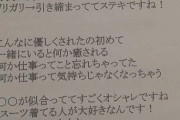 ガリガリ→引き締まっててステキですね！
こんなに優しくされたの初めて
一緒にいると何か癒される
何か仕事ってこと忘れちゃってた
何か仕事って気持ちじゃなくなっちゃう
○○が似合っててすごくオシャレですね
スーツ着てる人が大好きなんです！